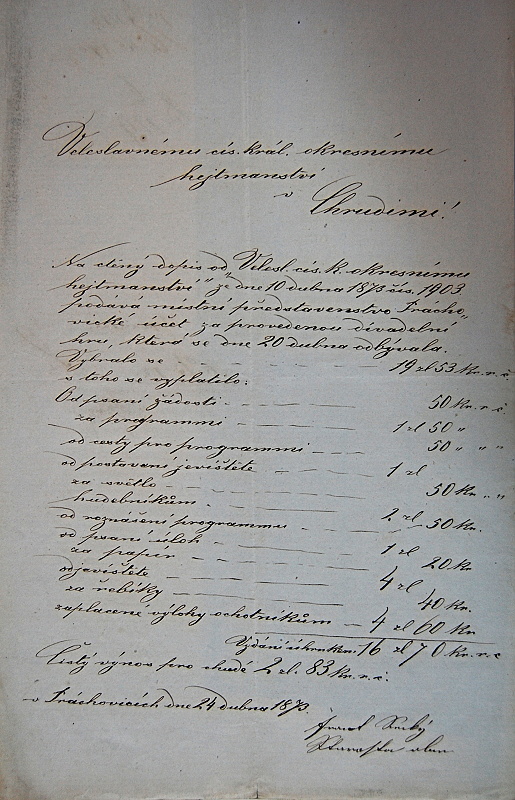 Veleslavnému cís. král. okresnímu
hejtmanství
v
Chrudimi!
Na ctěný dopis od „Velesl. cís. k. okresnímu
hejtmanství" ze dne 10 dubna 1873 čís. 1903
podává místní představenstvo Prácho„
vické účet za provedenou divadelní
hru, která se dne 20 dubna odbývala.
Vybralo se 19 zl 53 kr. r. č.
z toho se vyplatilo:
Od psaní žádosti 50 kr. r č.
za programmi 1 zl 50 "
od cesty pro programmi 50 " " "
od postavaní jevištěte 1 zl
za světlo 50 kr " "
hudebníkům 2 zl
od roznášení programmu 50 kr.
od psaní úloh 1 zl
za papír 20 kr
od jevištěte 4 zl
za řebíky 40 kr.
zaplacené výlohy ochotníkům 4 zl 60 kr
Vydání úhrnkem: 16 zl 70 kr. r. č
Čistý výnos pro chudé 2 zl. 83 kr. r. č.
v Práchovicích dne 24 dubna 1873.
Starosta obce